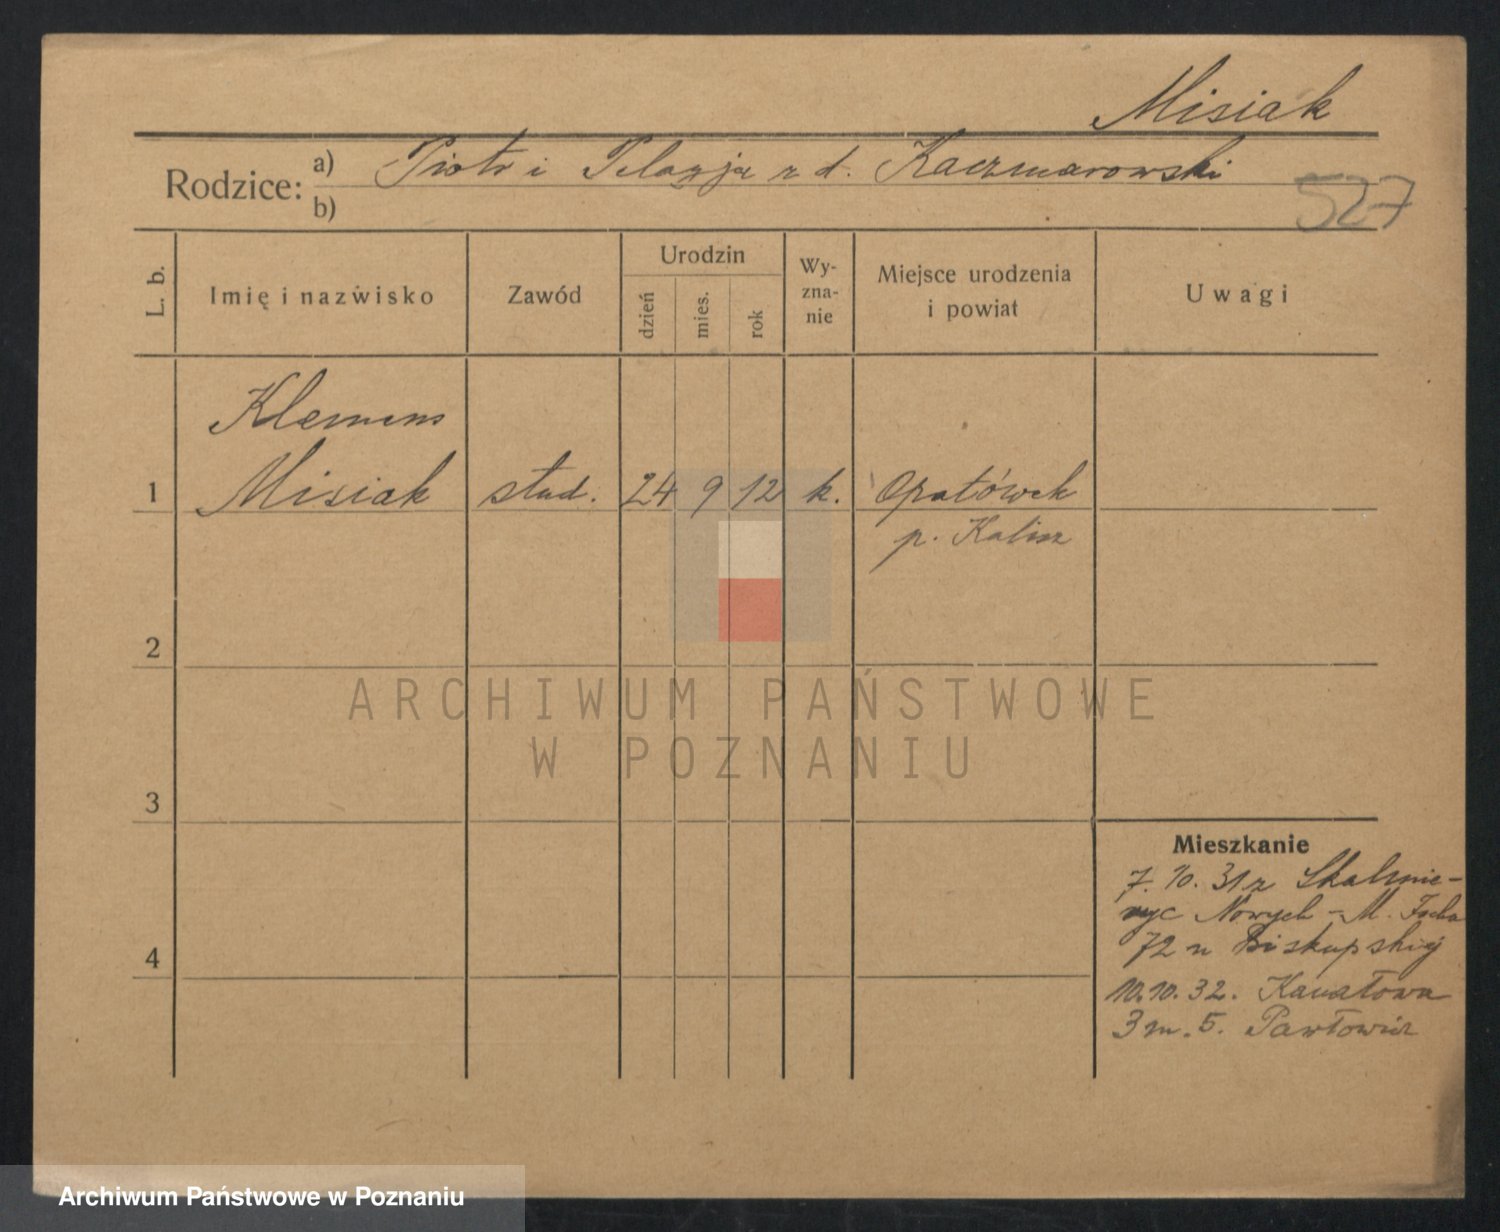 Misiak
Rodzice: a) Piotr i Pelagja z d. Kaczmarowski
b)
527
L. b.
Imię i nazwisko
Zawód
Urodzin
dzień
mies.
rok
Wy-
zna-
nie
Miejsce urodzenia
i powiat
Uwagi
Klemens
1 Misiak stud. 24 9 12 k. Opatówek
p. Kalisz
2
ARCHIWUM PAŃSTWOWE
W POZNANIU
3
Mieszkanie
7. 10. 31 z Skalmie-
rzyc Nowych - M. Focha
72 u Biskupskiej
4
10.10.32. Kanałowa
3 m. 5. Pawłowicz
Archiwum Państwowe w Poznaniu